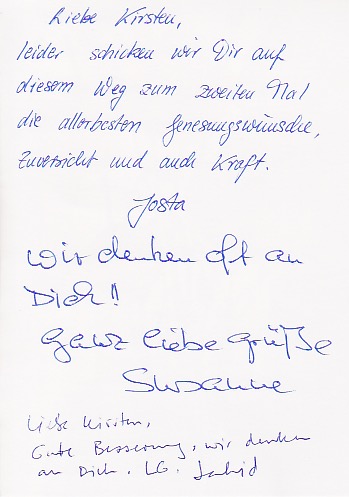 Liebe Kirsten,
leider schicken wir Dir auf
diesem Weg zum zweiten Mal
die allerbesten Genesungswünsche,
Zuversicht und auch Kraft.
Josta
Wir denken oft an
Dich!!
Ganz liebe Grüße
Susanne
Liebe Kirsten,
Gute Besserung, wir denken
an Dich. LG.